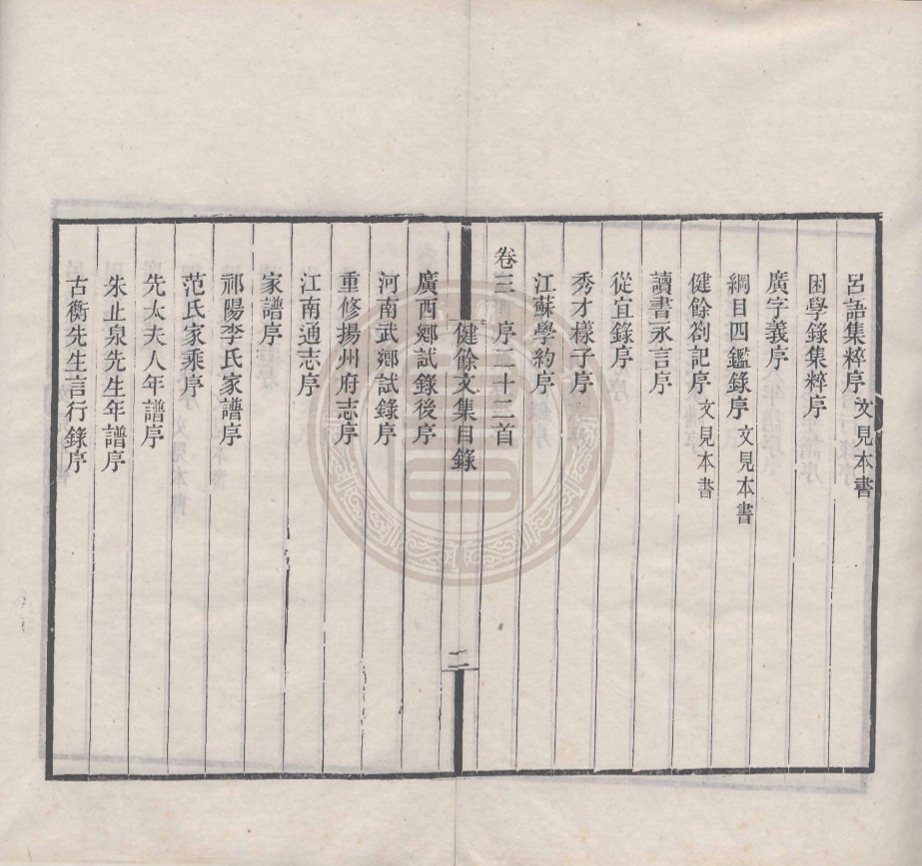 呂語集粹序 文見本書
困學錄集粹序
廣字義序
綱目四鑑錄序 文見本書
健餘劄記序 文見本書
讀書永言序
從宜錄序
秀才樣子序
江蘇學約序
卷三 序三十二首
健餘文集目錄 二
廣西鄉試錄後序
河南武鄉試錄序
重修揚州府志序
江南通志序
家譜序
祁陽李氏家譜序
范氏家乘序
先太夫人年譜序
朱止泉先生年譜序
古衡先生言行錄序